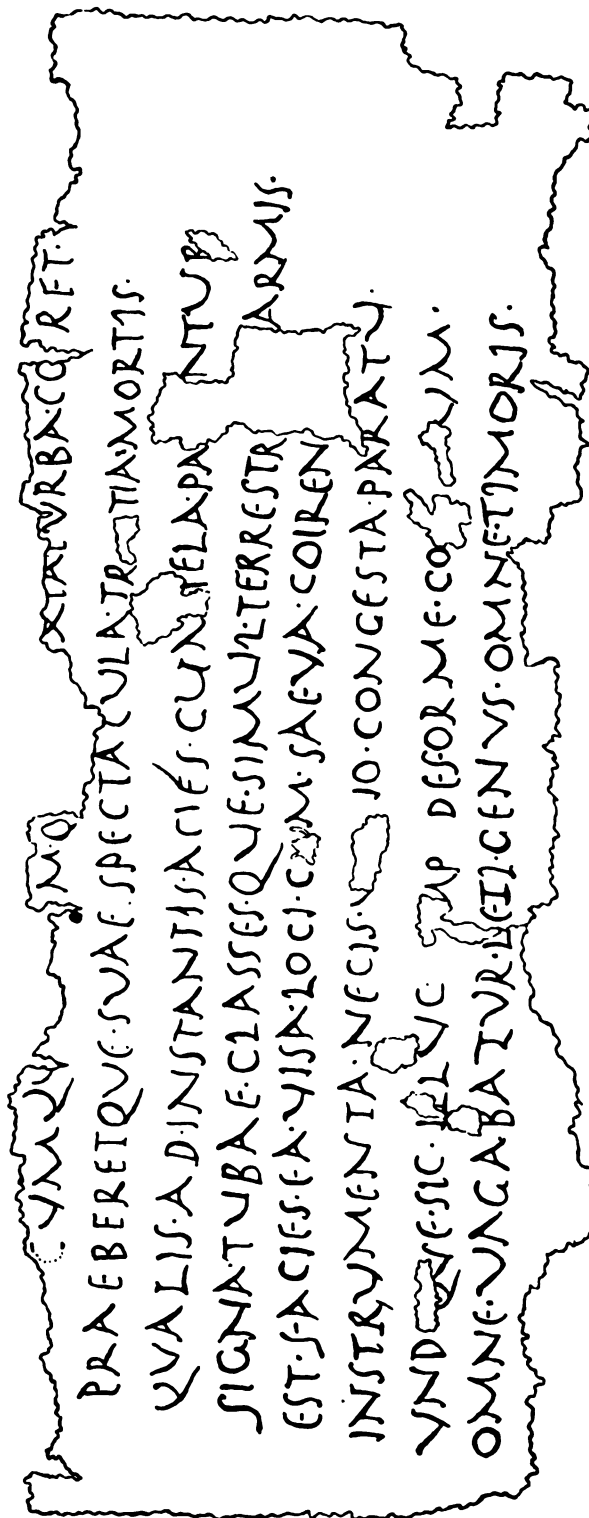 VMQV M·O XTATVRBA·CO RET·
PRAEBERETQVE·SVAE·SPECTACVLA·TR TIA·MORTIS·
QVALIS·AD·INSTANTIS·ACIÉS·CVM TELA·PA NTVR
SIGNA·TVBAE·CLASSESQVE·SIMVL·TERRESTR ARMIS·
EST·FACIES·EA·VISA·LOCI·C M·SAEVA·COIREN
INSTRVMENTA·NECIS·V IO·CONGESTA·PARATV·
VNDIQVE·SIC·ILLVC AMP DEFORME·CO VM·
OMNE·VAGABATVR·LETI·GENVS·OMNE·TIMORIS·